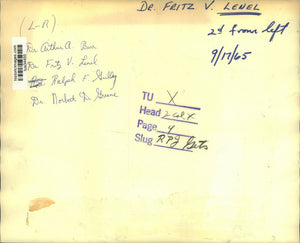 DR. FRITZ V. LENEL
2d from left
9/17/65
(L-R)
Dr. Arthur A. Burr
Dr. Fritz V. Lenel
Ralph F. Gulley
Dr. Norbert D. Greene
TU X
Head 2 col x
Page 4
Slug RPI Gets